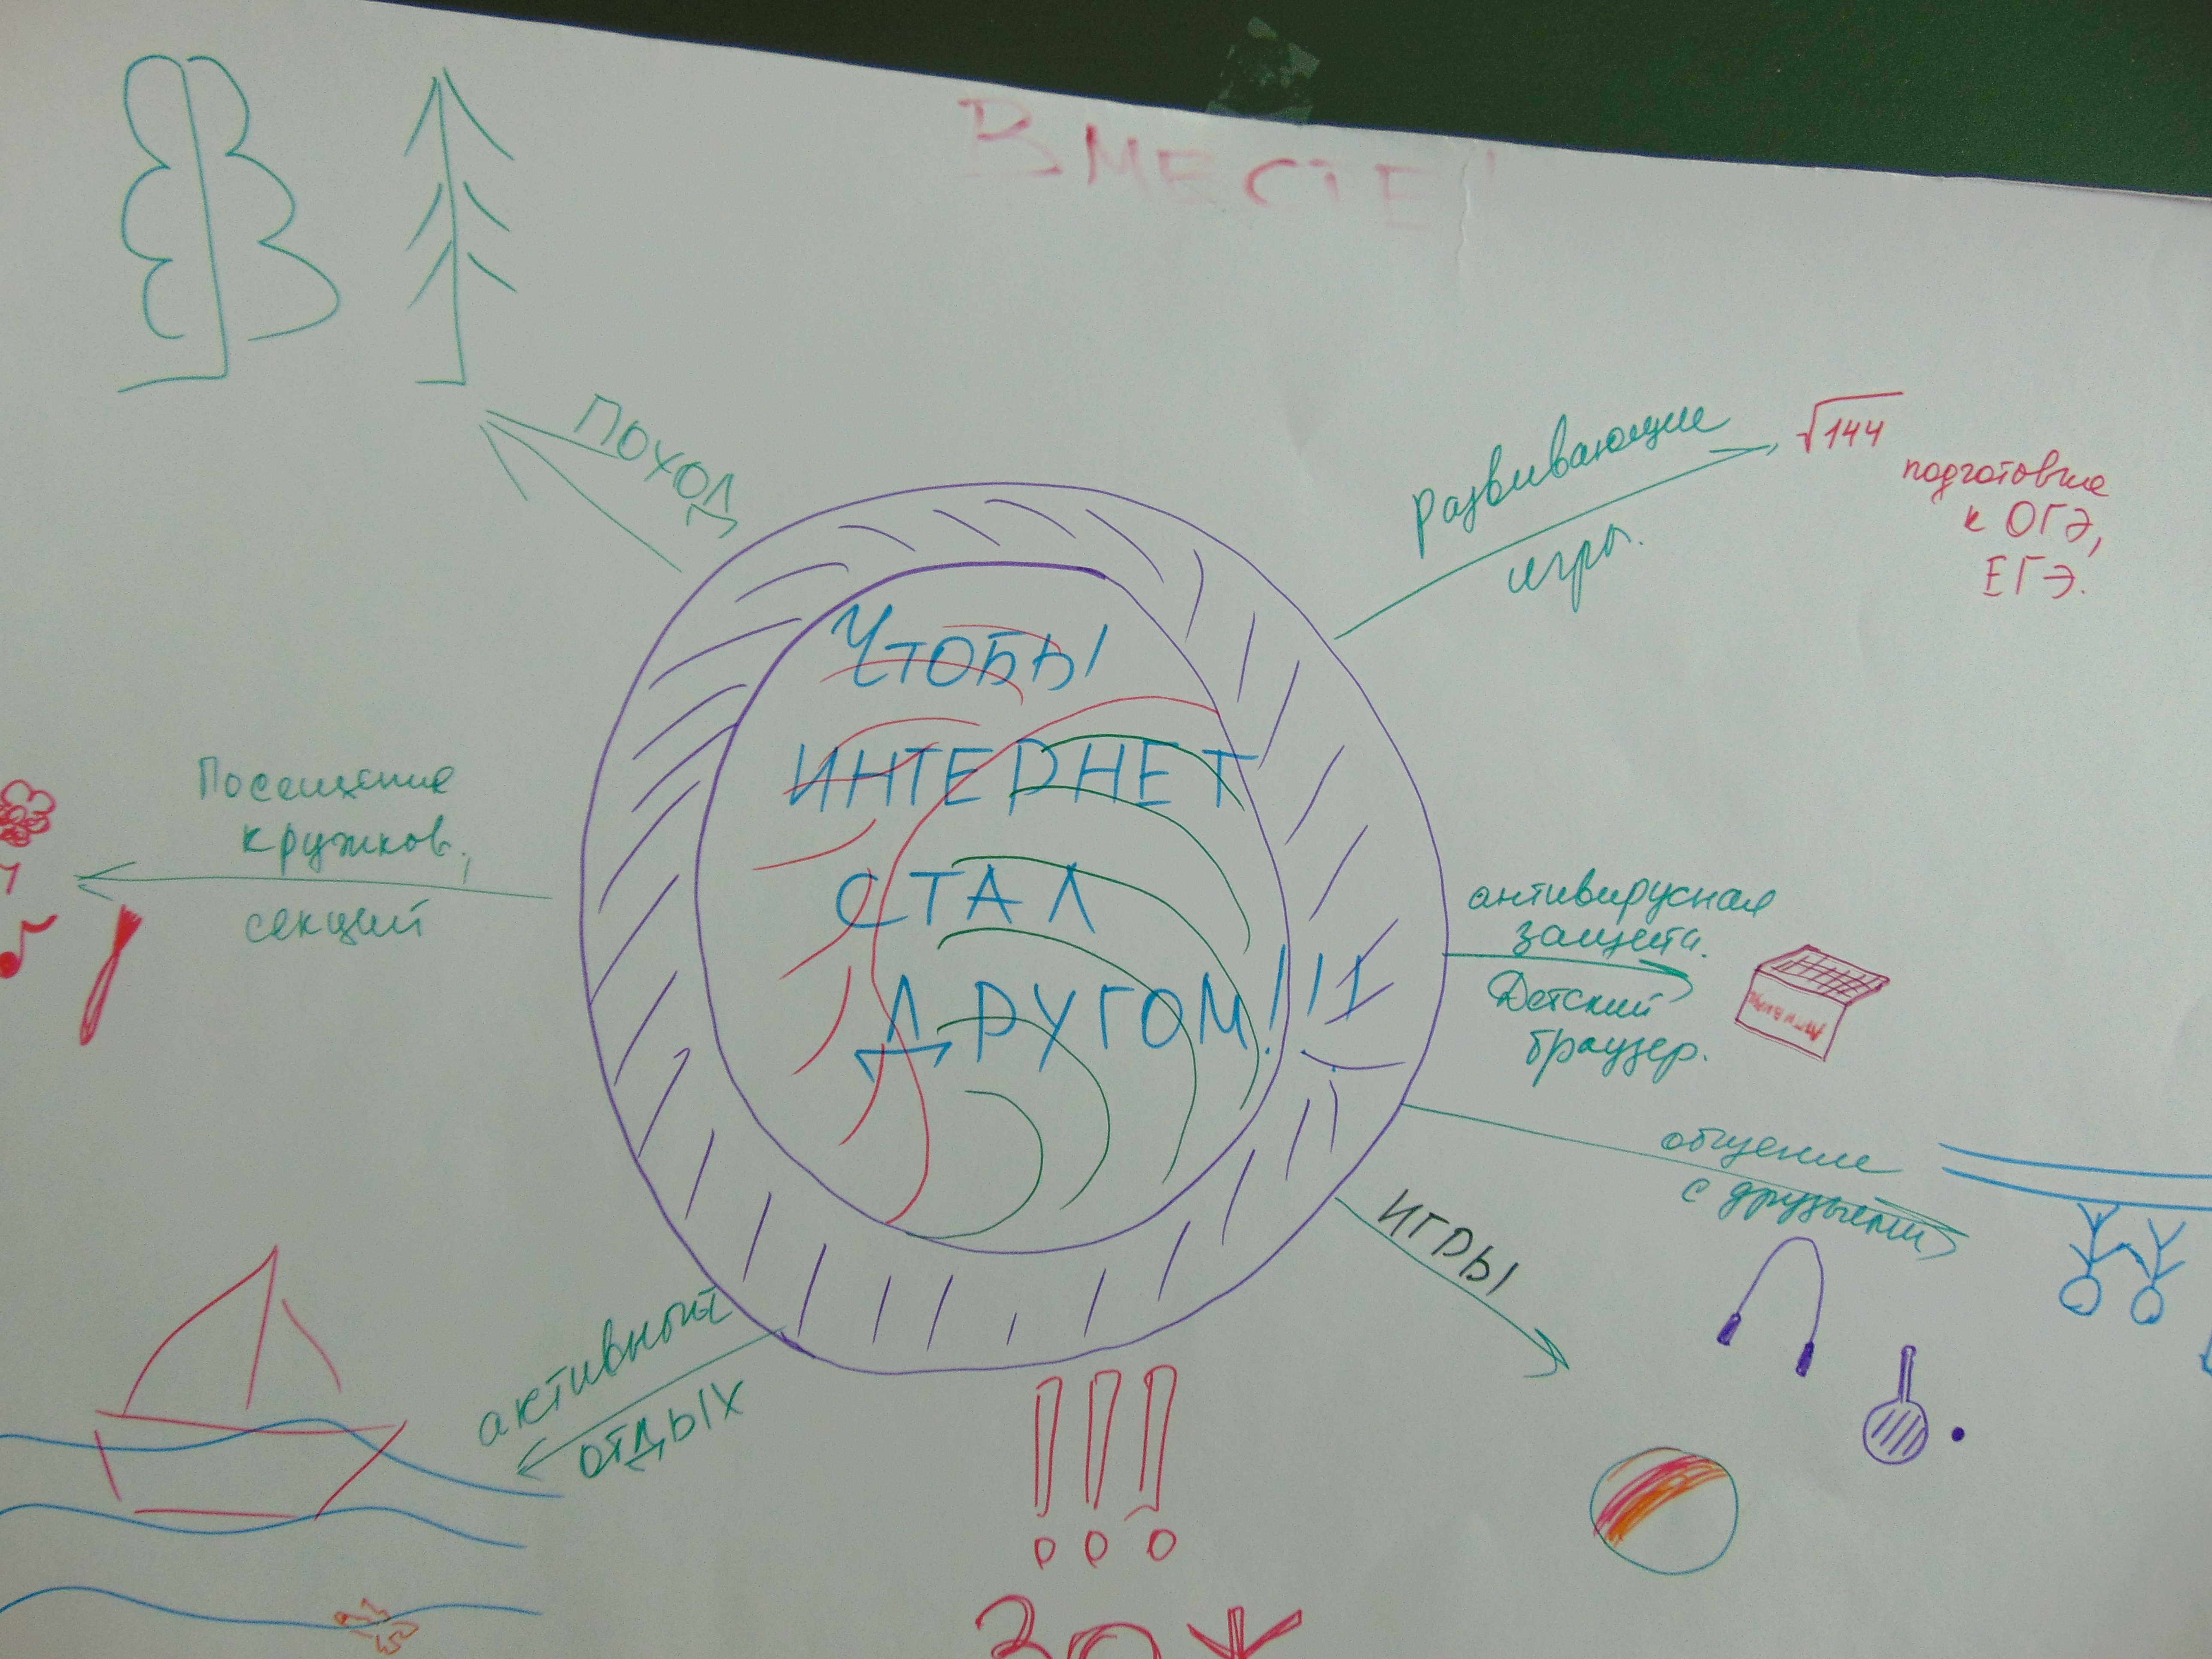 ВМЕСТЕ!
ПОХОД
Развивающие
игры.
√144
подготовке
к ОГЭ,
ЕГЭ.
Чтобы
ИНТЕРНЕТ
СТАЛ
ДРУГОМ!!!
Посещение
кружков,
секций
антивирусная
защита.
Детский
браузер.
Антивирус
общение
с друзьями
ИГРЫ
активный
отдых
!!!
ЗОЖ